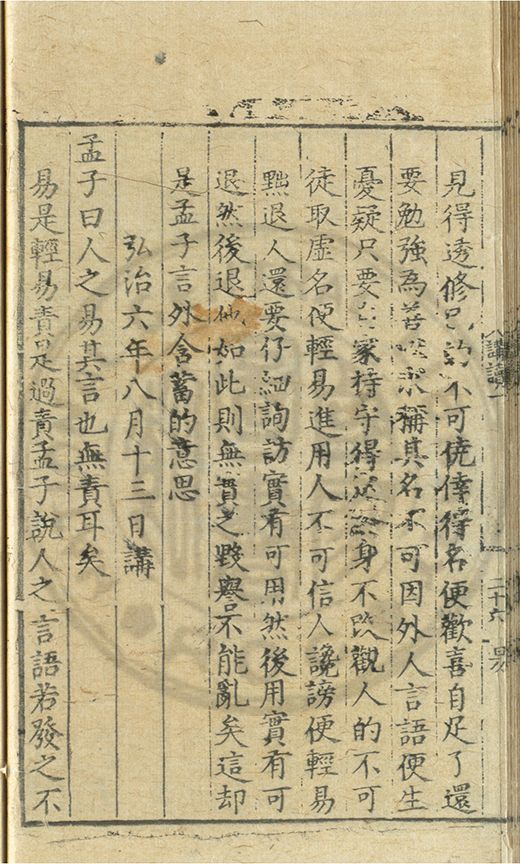 二十六
見得透修己的不可僥倖得名便歡喜自足了還
要勉強為善求稱其名不可因外人言語便生
憂疑只要家持守得身不觀人的不可
徒取虛名便輕易進用人不可信人讒謗便輕易
黜退人還要仔細詢訪實有可用然後用實有可
退然後退他如此則無實之毀譽不能亂矣這却
是孟子言外含蓄的意思
弘治六年八月十三日講
孟子曰人之易其言也無責耳矣
易是輕易責是過責孟子說人之言語若發之不